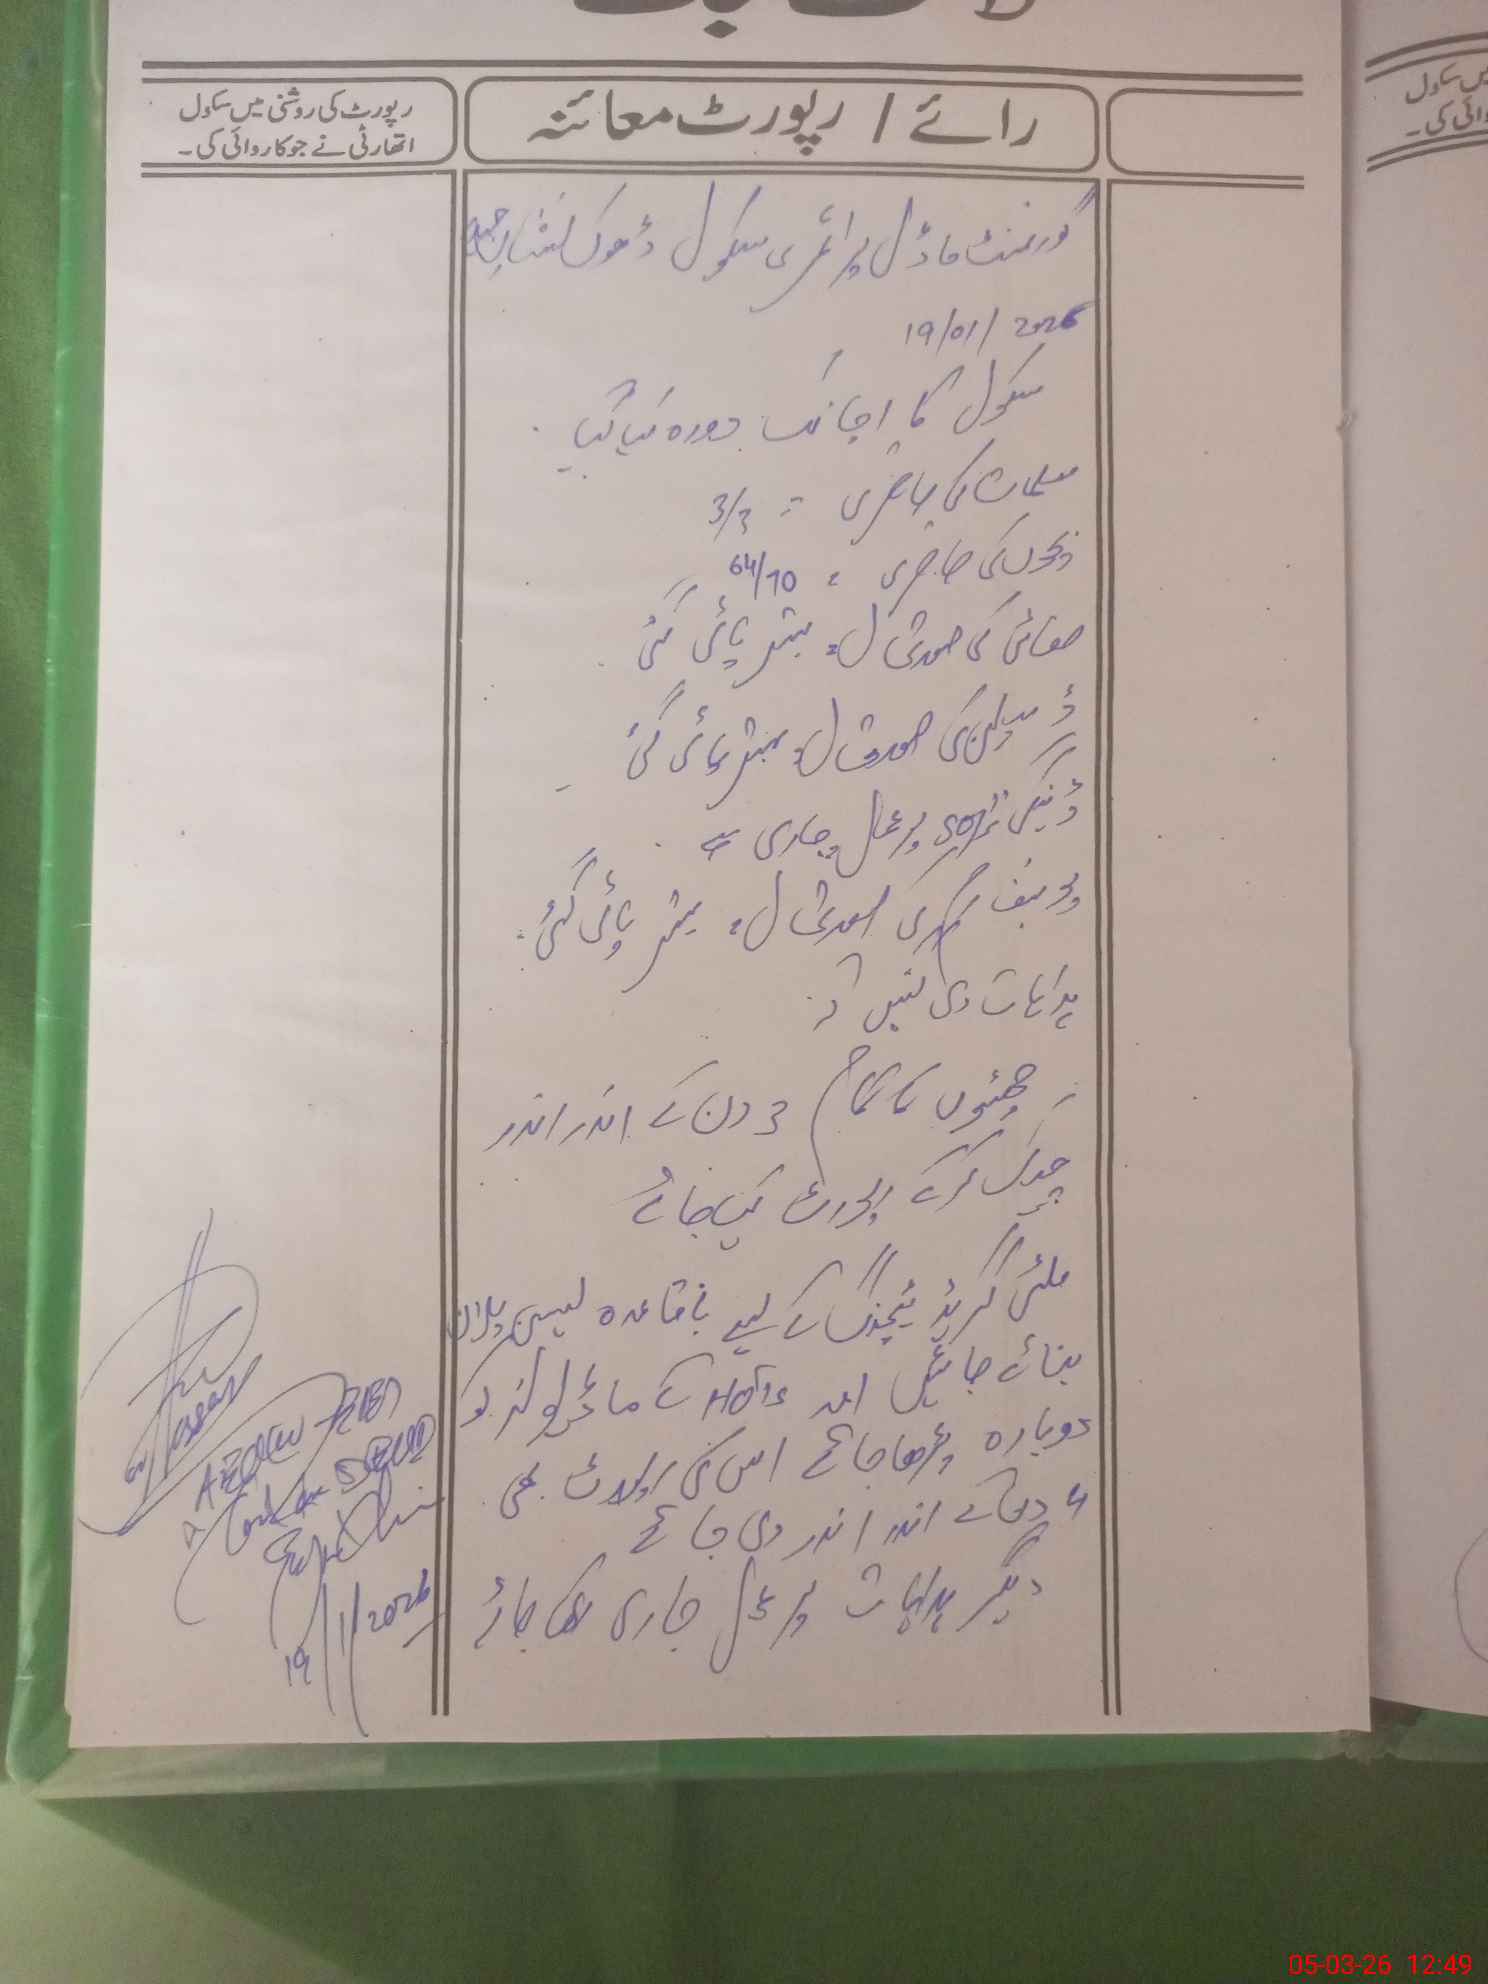 رائے / رپورٹ معائنہ
رپورٹ کی روشنی میں سکول
اتھارٹی نے جو کاروائی کی۔
گورنمنٹ ماڈل پرائمری سکول ڈھوک
19/01/2026
سکول کا اچانک دورہ کیا گیا۔
معلمات کی حاضری = 3/3
بچوں کی حاضری = 64/70
صفائی کی صورتحال = بہتر پائی گئی۔
ڈسپلن کی صورتحال = بہتر پائی گئی۔
ڈینگی SOPs پر عمل جاری ہے۔
کی صورتحال = بہتر پائی گئی۔
ہدایات دی گئیں کہ
چھٹیوں کا کام 3 دن کے اندر اندر
چیک کر کے رپورٹ کیا جائے
ملٹی گریڈ ٹیچنگ کے لیے باقاعدہ لیسن پلان
بنائے جائیں اور HOTs کے ماڈیولز کو
دوبارہ پڑھا جائے اس کی رپورٹ بھی
4 دن کے اندر اندر دی جائے
دیگر ہدایات پر عمل جاری رکھا جائے
19/1/2026
میں سکول
وائی کی۔
05-03-26 12:49